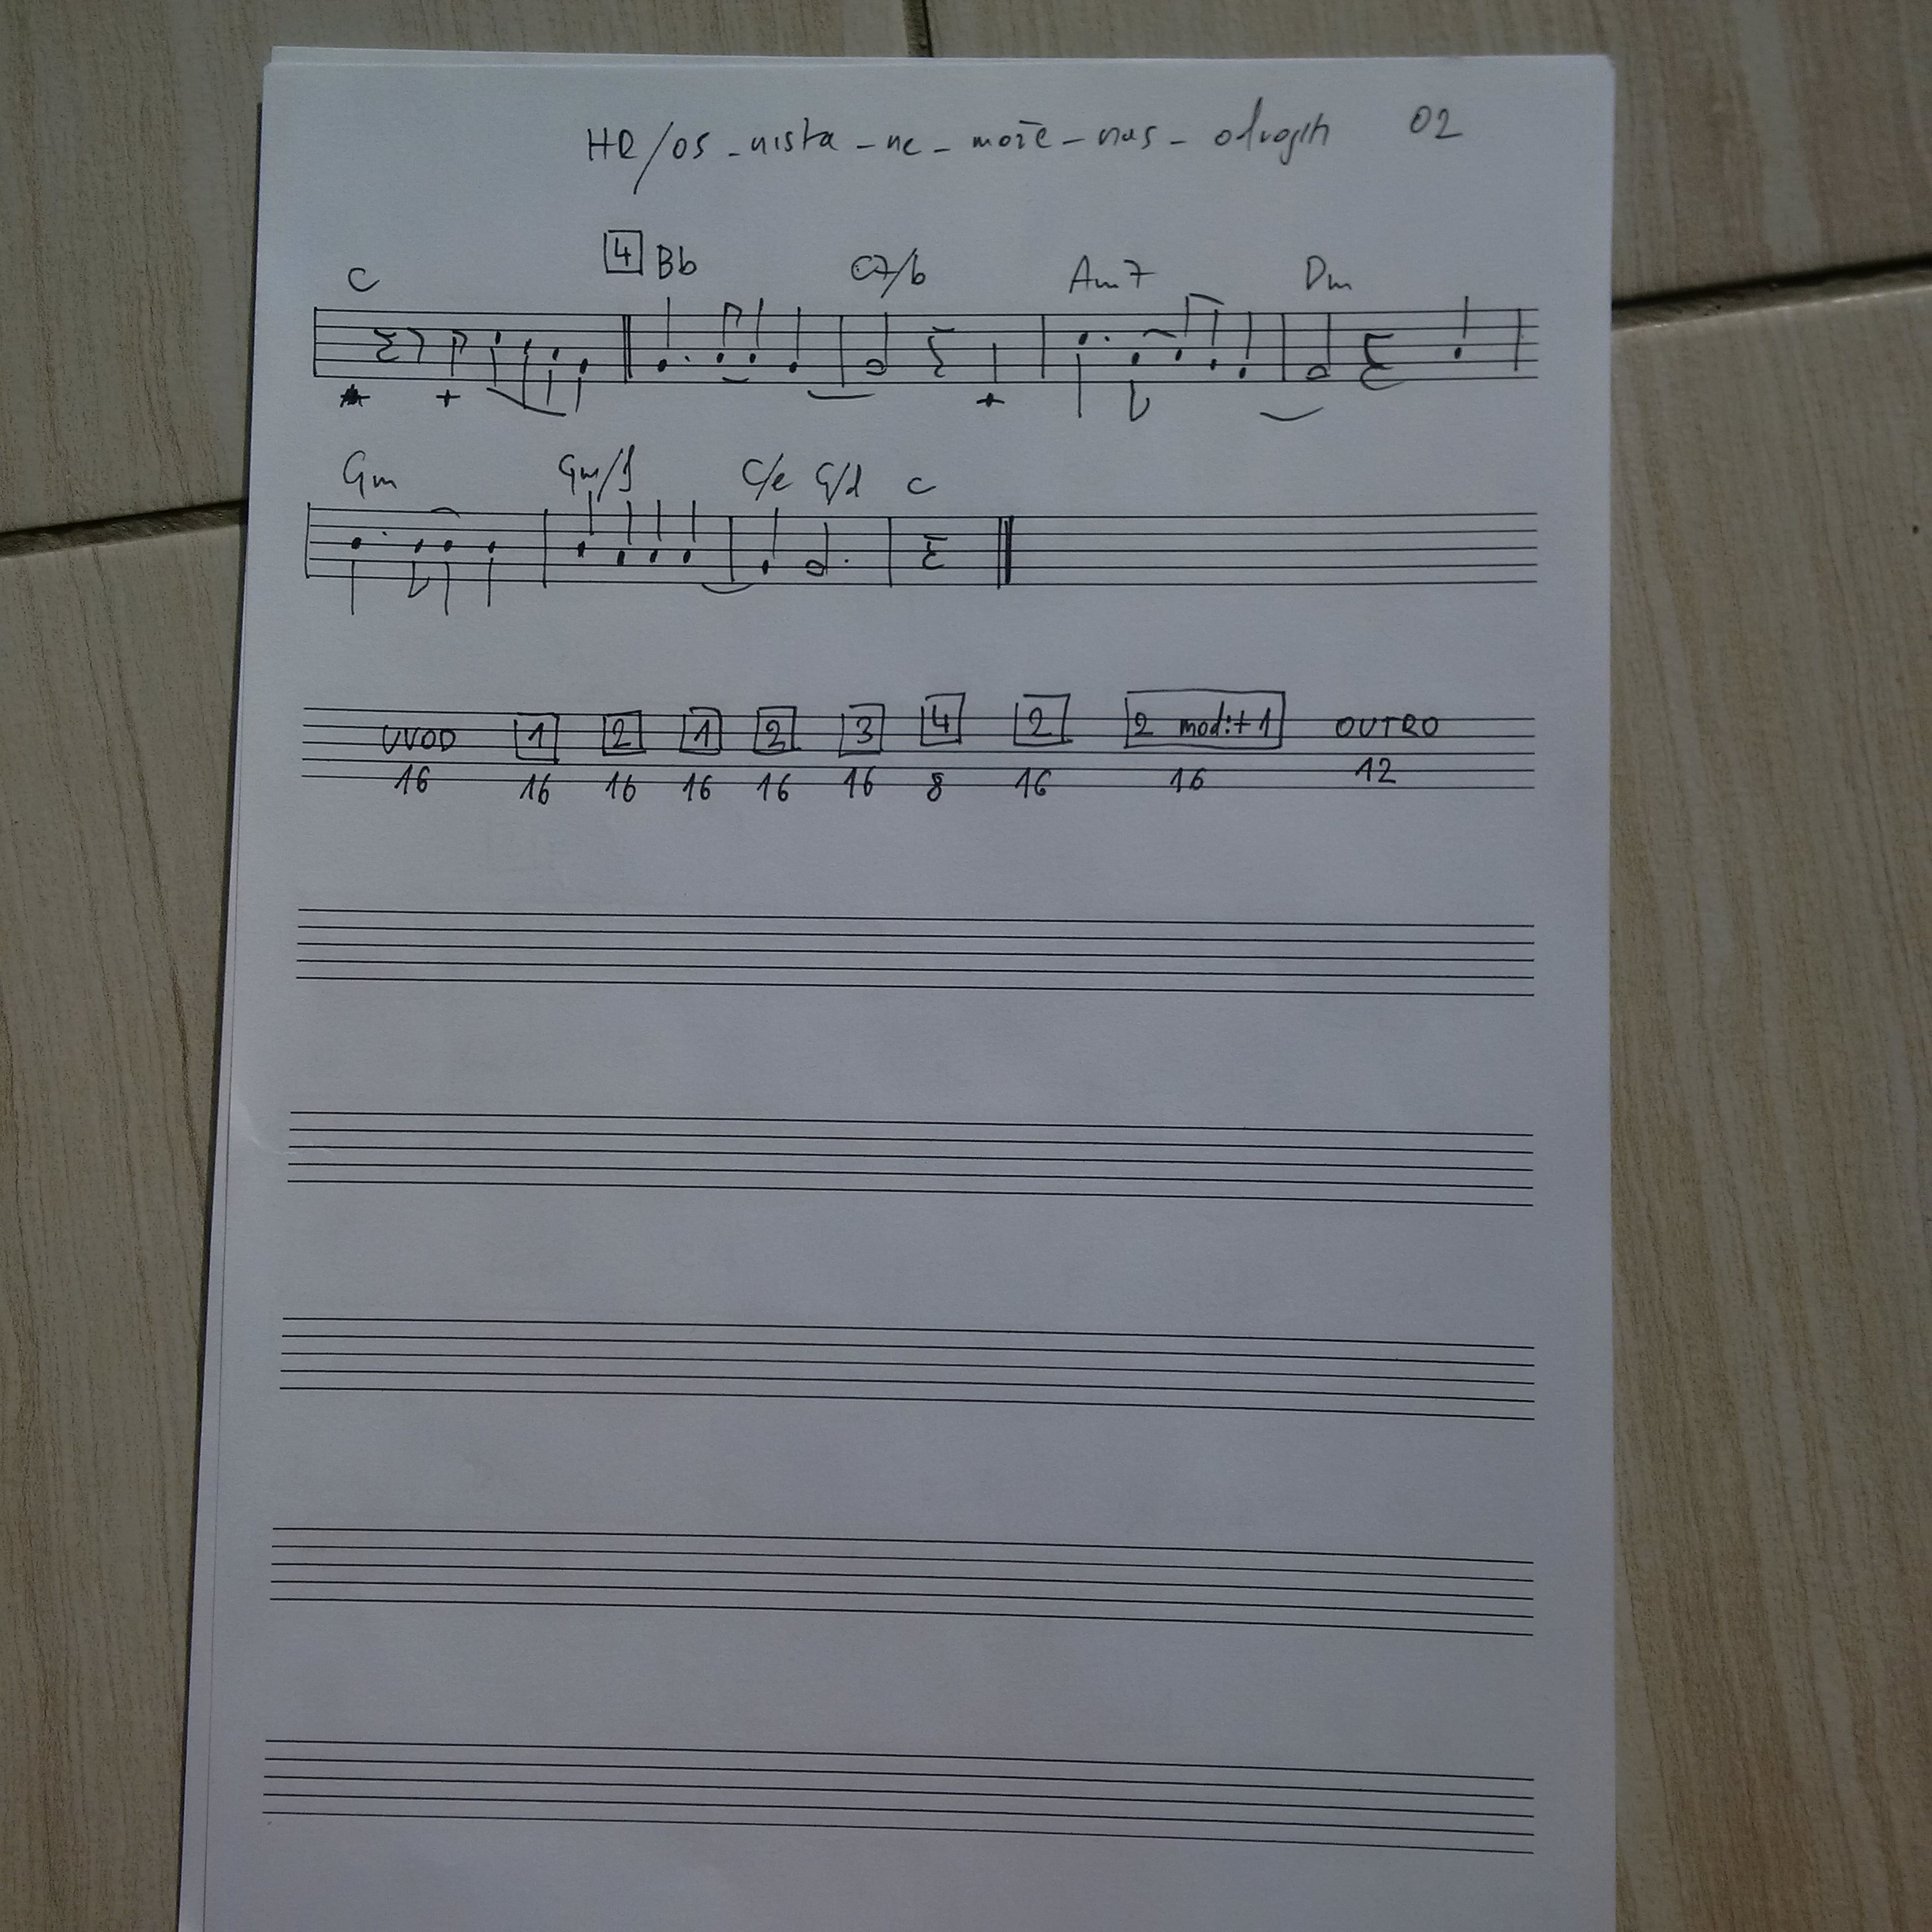 HR/OS_nista_ne_može_nas_odvojiti 02
C 4 Bb C7/b Am7 Dm
Gm Gm/f C/e C/d C
UVOD 1 2 1 2 3 4 2 2 mod:+1 OUTRO
16 16 16 16 16 16 8 16 16 12